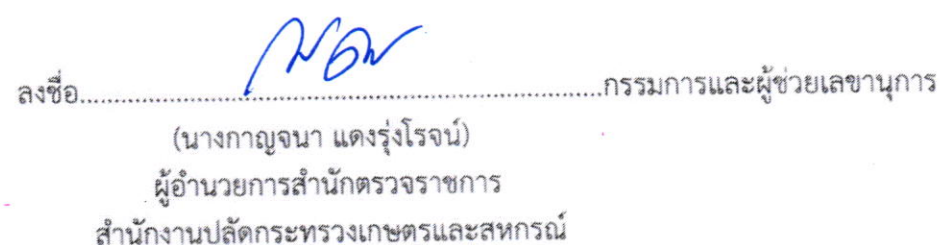 ลงชื่อ.....................................................................................กรรมการและผู้ช่วยเลขานุการ
(นางกาญจนา แดงรุ่งโรจน์)
ผู้อำนวยการสำนักตรวจราชการ
สำนักงานปลัดกระทรวงเกษตรและสหกรณ์